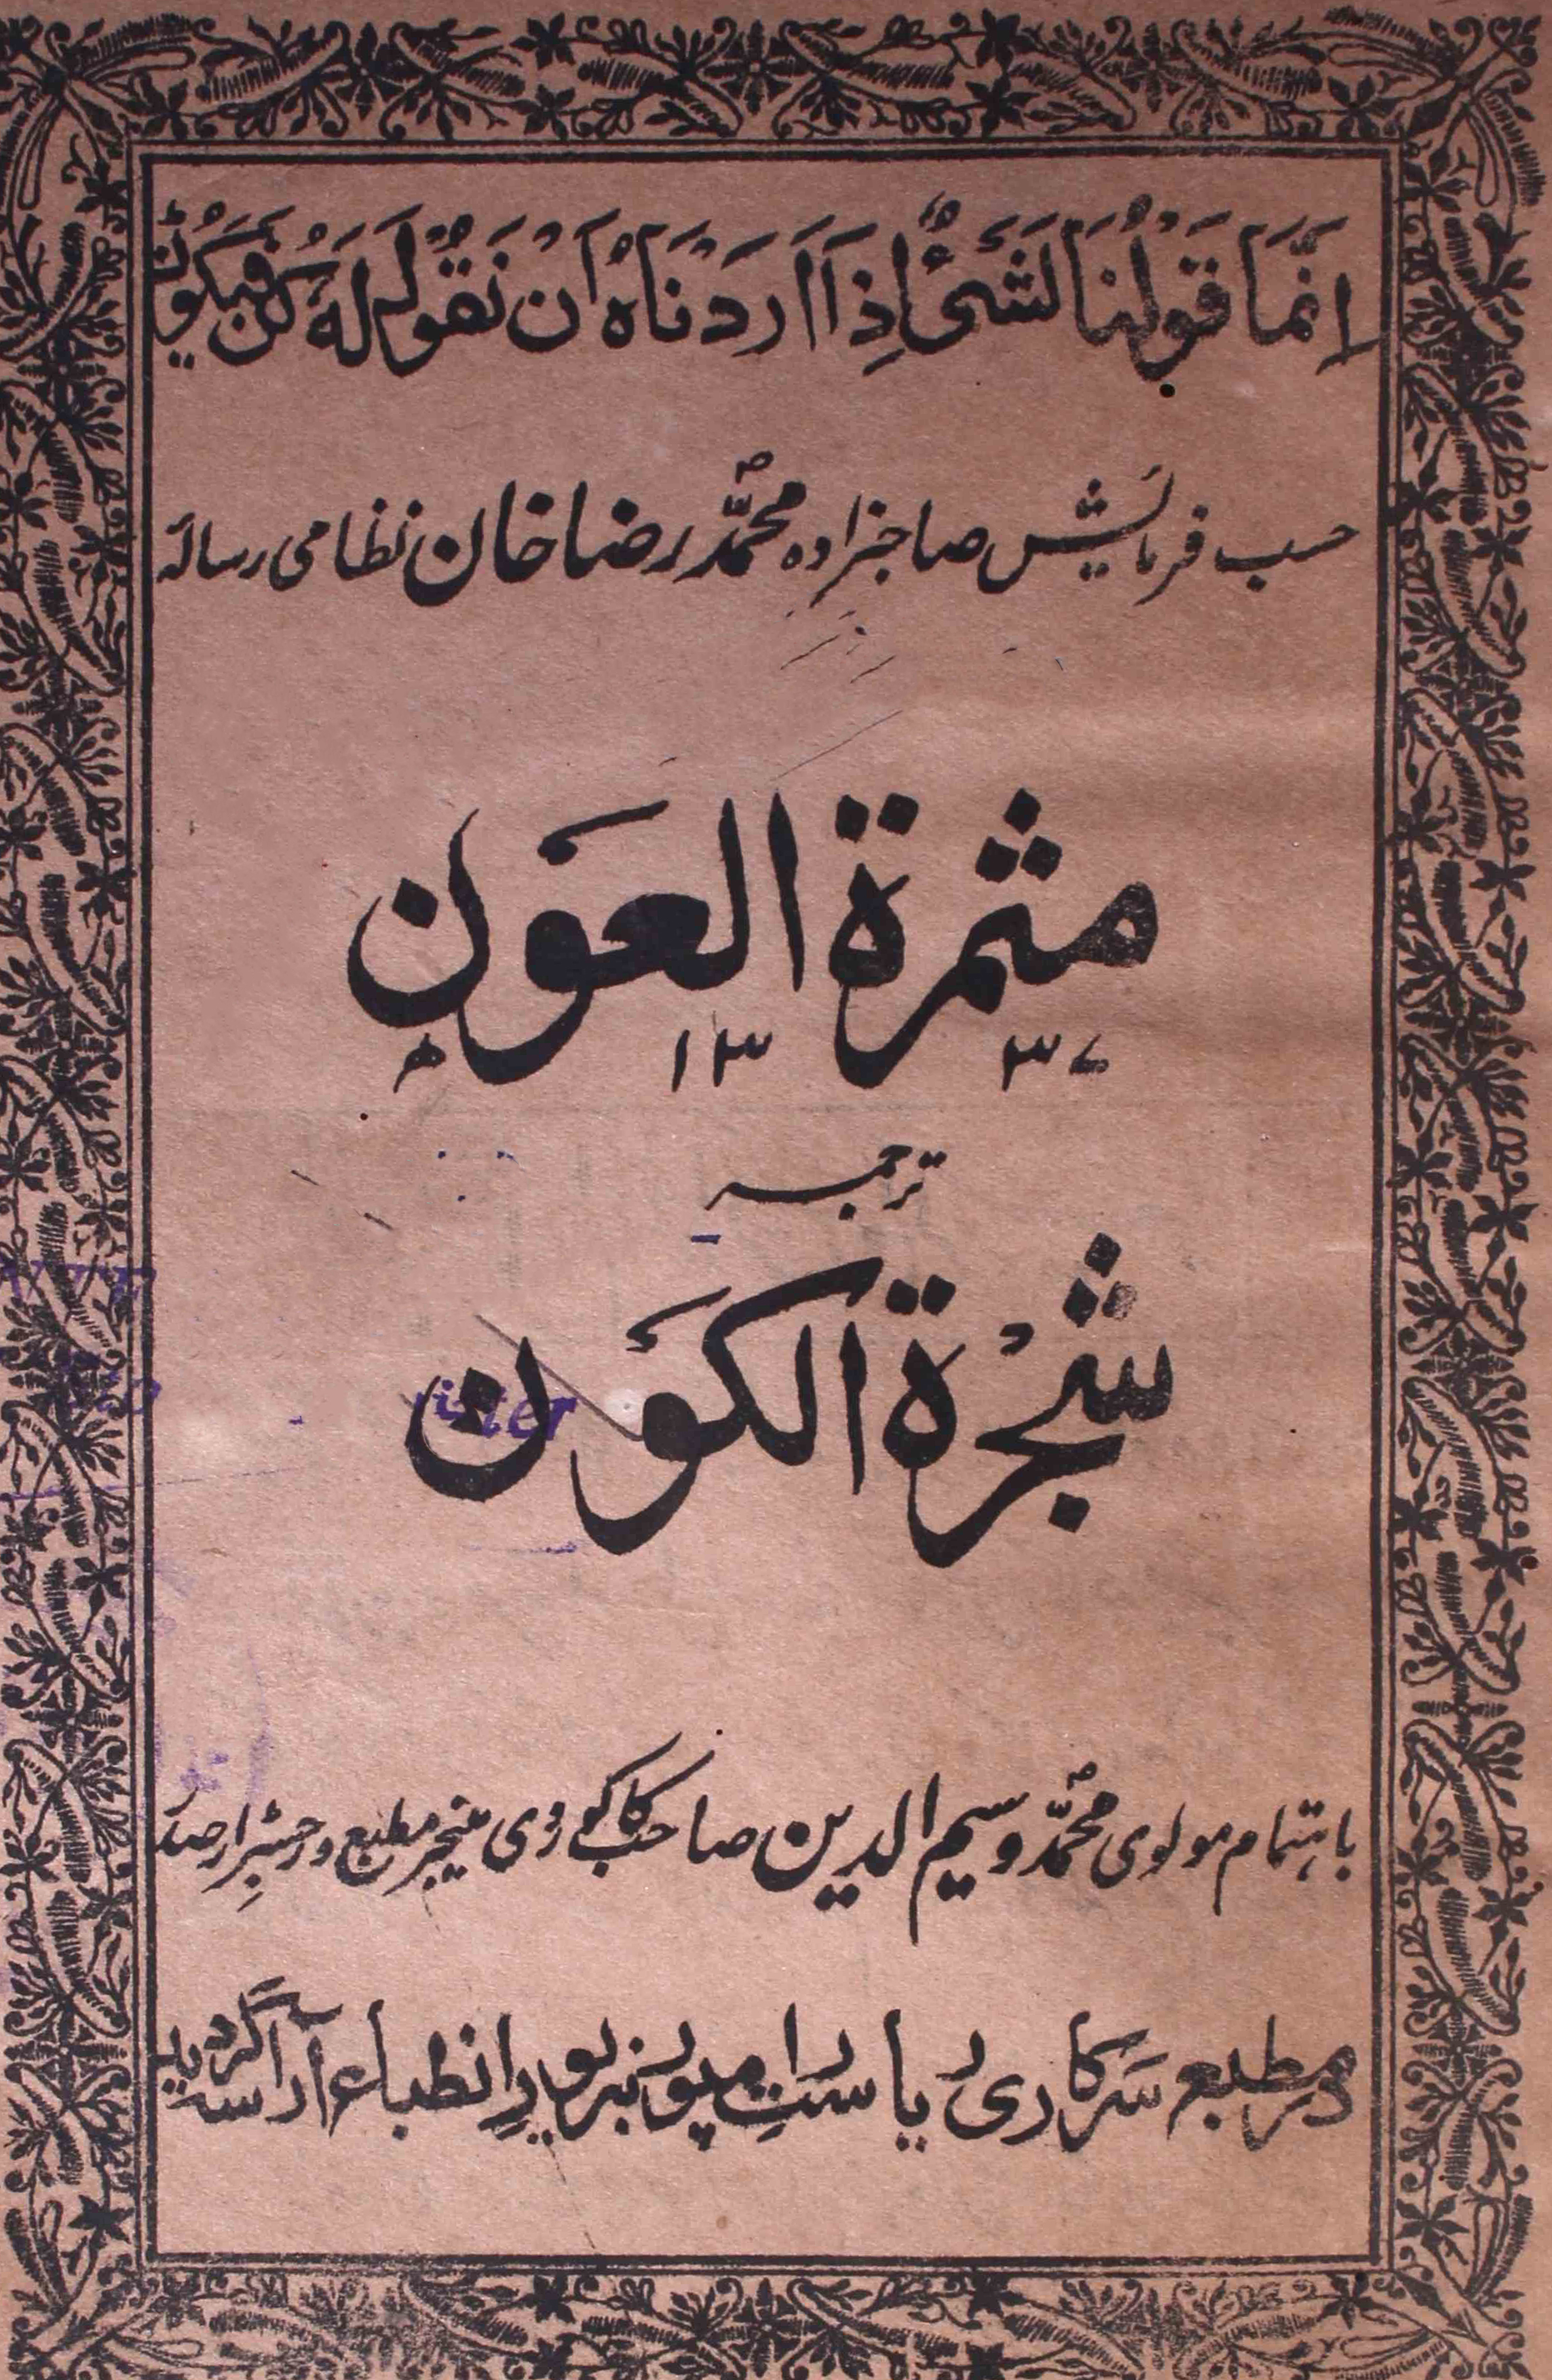 اِنَّمَا قَوْلُنَا لِشَیْءٍ اِذَا اَرَدْنَاهُ اَنْ نَقُوْلَ لَهُ كُنْ فَیَكُوْنُ
حسب فرمایش صاحبزاده محمّد رضا خان نظامی رساله
مثمرة العَون
١٣ ٣٧ ھ
ترجمہ
شجرْة الكَوْن
باہتمام مولوی محمّد وسیم الدین صاحب کاکوروی منیجر مطبع و رجسٹرار صدر
در مطبع سرکاری ریاست رامپور بزیور انطباع آراسته گردید